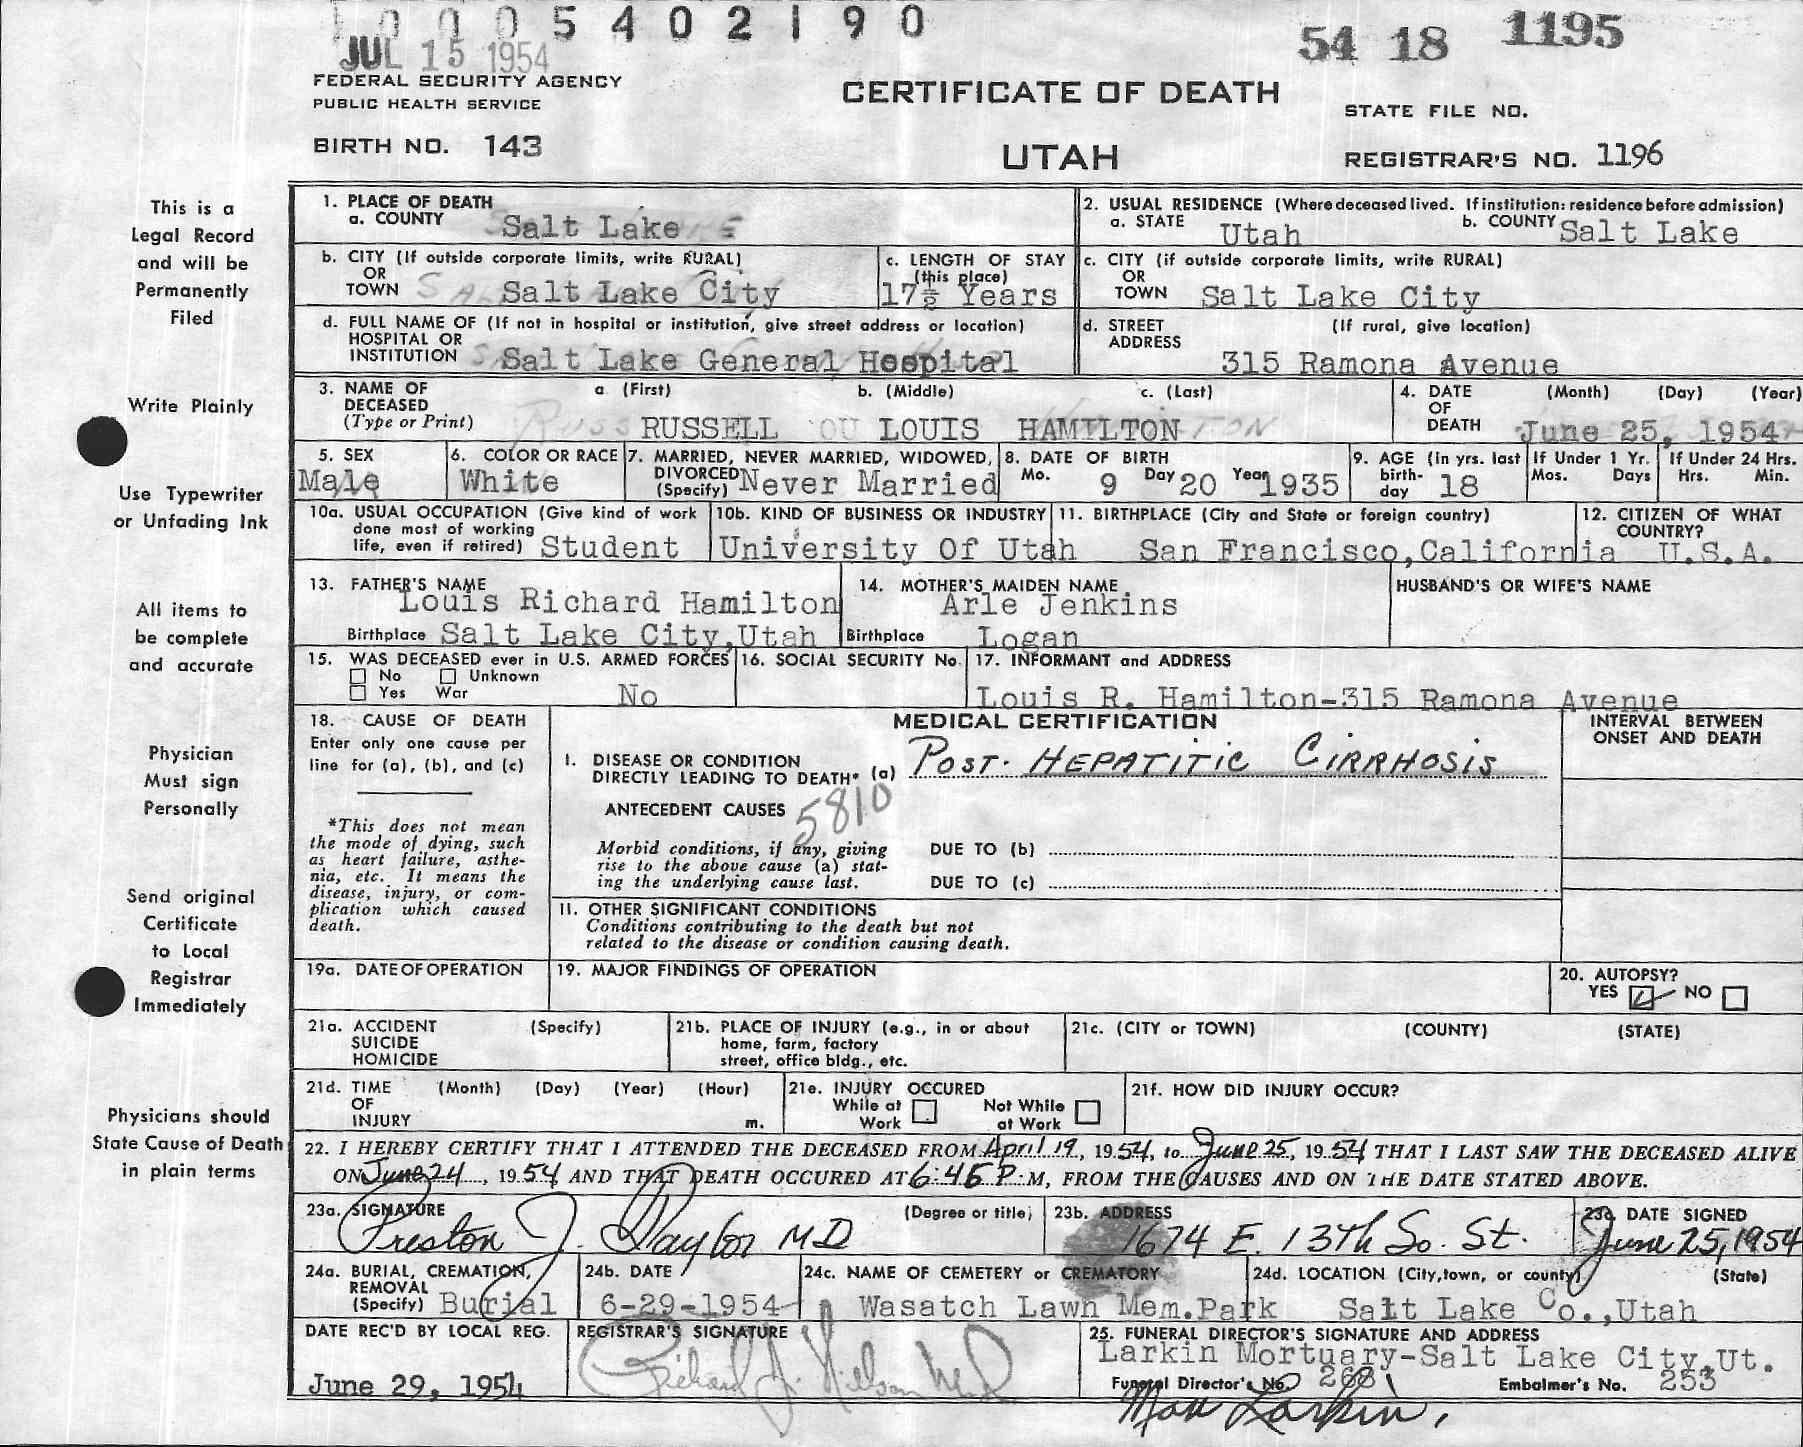 1 0 0 0 5 4 0 2 1 9 0
JUL 15 1954
54 18 1195
FEDERAL SECURITY AGENCY
PUBLIC HEALTH SERVICE
CERTIFICATE OF DEATH
STATE FILE NO.
BIRTH NO. 143
UTAH
REGISTRAR'S NO. 1196
This is a
Legal Record
and will be
Permanently
Filed
Write Plainly
Use Typewriter
or Unfading Ink
All items to
be complete
and accurate
Physician
Must sign
Personally
Send original
Certificate
to Local
Registrar
Immediately
Physicians should
State Cause of Death
in plain terms
1. PLACE OF DEATH
a. COUNTY Salt Lake
2. USUAL RESIDENCE (Where deceased lived. If institution: residence before admission)
a. STATE Utah b. COUNTY Salt Lake
b. CITY (If outside corporate limits, write RURAL)
OR
TOWN Salt Lake City
c. LENGTH OF STAY
(this place)
17½ Years
c. CITY (if outside corporate limits, write RURAL)
OR
TOWN Salt Lake City
d. FULL NAME OF (If not in hospital or institution, give street address or location)
HOSPITAL OR
INSTITUTION Salt Lake General Hospital
d. STREET (If rural, give location)
ADDRESS
315 Ramona Avenue
3. NAME OF a (First) b. (Middle) c. (Last)
DECEASED
(Type or Print) RUSSELL LOUIS HAMILTON
4. DATE (Month) (Day) (Year)
OF
DEATH June 25, 1954
5. SEX
Male
6. COLOR OR RACE
White
7. MARRIED, NEVER MARRIED, WIDOWED,
DIVORCED
(Specify) Never Married
8. DATE OF BIRTH
Mo. 9 Day 20 Year 1935
9. AGE (In yrs. last
birth-
day 18
If Under 1 Yr.
Mos. Days
If Under 24 Hrs.
Hrs. Min.
10a. USUAL OCCUPATION (Give kind of work
done most of working
life, even if retired) Student
10b. KIND OF BUSINESS OR INDUSTRY
University Of Utah
11. BIRTHPLACE (City and State or foreign country)
San Francisco, California
12. CITIZEN OF WHAT
COUNTRY?
U.S.A.
13. FATHER'S NAME
Louis Richard Hamilton
Birthplace Salt Lake City, Utah
14. MOTHER'S MAIDEN NAME
Arle Jenkins
Birthplace Logan
HUSBAND'S OR WIFE'S NAME
15. WAS DECEASED ever in U.S. ARMED FORCES
No Unknown
Yes War No
16. SOCIAL SECURITY No.
17. INFORMANT and ADDRESS
Louis R. Hamilton-315 Ramona Avenue
18. CAUSE OF DEATH
Enter only one cause per
line for (a), (b), and (c)
*This does not mean
the mode of dying, such
as heart failure, asthe-
nia, etc. It means the
disease, injury, or com-
plication which caused
death.
MEDICAL CERTIFICATION
INTERVAL BETWEEN
ONSET AND DEATH
I. DISEASE OR CONDITION
DIRECTLY LEADING TO DEATH* (a) POST-HEPATITIC CIRRHOSIS
ANTECEDENT CAUSES 5810
Morbid conditions, if any, giving
rise to the above cause (a) stat-
ing the underlying cause last.
DUE TO (b)
DUE TO (c)
11. OTHER SIGNIFICANT CONDITIONS
Conditions contributing to the death but not
related to the disease or condition causing death.
19a. DATE OF OPERATION
19. MAJOR FINDINGS OF OPERATION
20. AUTOPSY?
YES NO
21a. ACCIDENT (Specify)
SUICIDE
HOMICIDE
21b. PLACE OF INJURY (e.g., in or about
home, farm, factory
street, office bldg., etc.
21c. (CITY or TOWN) (COUNTY) (STATE)
21d. TIME (Month) (Day) (Year) (Hour)
OF
INJURY m.
21e. INJURY OCCURED
While at Not While
Work at Work
21f. HOW DID INJURY OCCUR?
22. I HEREBY CERTIFY THAT I ATTENDED THE DECEASED FROM April 19, 1954, to June 25, 1954 THAT I LAST SAW THE DECEASED ALIVE
ON June 24, 1954 AND THAT DEATH OCCURED AT 6:45 P.M, FROM THE CAUSES AND ON THE DATE STATED ABOVE.
23a. SIGNATURE (Degree or title)
Preston J. Taylor MD
23b. ADDRESS
1674 E. 13th So. St.
23c. DATE SIGNED
June 25, 1954
24a. BURIAL, CREMATION,
REMOVAL
(Specify) Burial
24b. DATE
6-29-1954
24c. NAME OF CEMETERY or CREMATORY
Wasatch Lawn Mem.Park
24d. LOCATION (City, town, or county) (State)
Salt Lake Co., Utah
DATE REC'D BY LOCAL REG.
June 29, 1954
REGISTRAR'S SIGNATURE
Richard J. Nielson M.D.
25. FUNERAL DIRECTOR'S SIGNATURE AND ADDRESS
Larkin Mortuary-Salt Lake City, Ut.
Funeral Director's No. 268 Embalmer's No. 253
Larkin